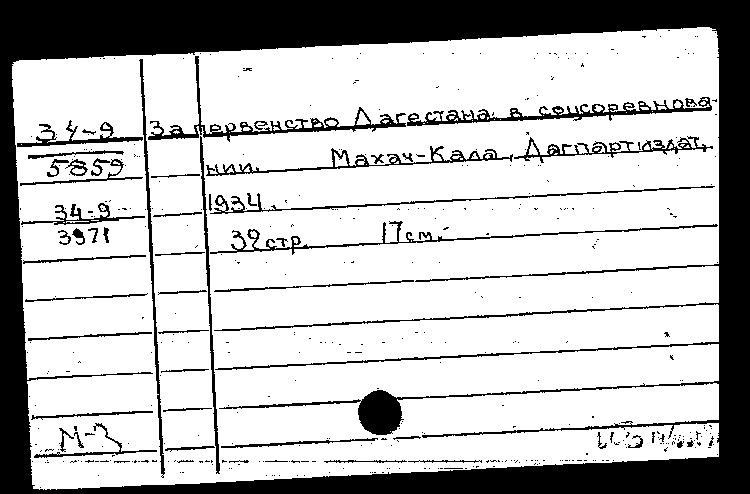 34-9 За первенство Дагестана в соцсоревнова-
5859 нии. Махач-Кала, Дагпартиздат,
34-9 1934.
3971 32 стр. 17 см.
М-3